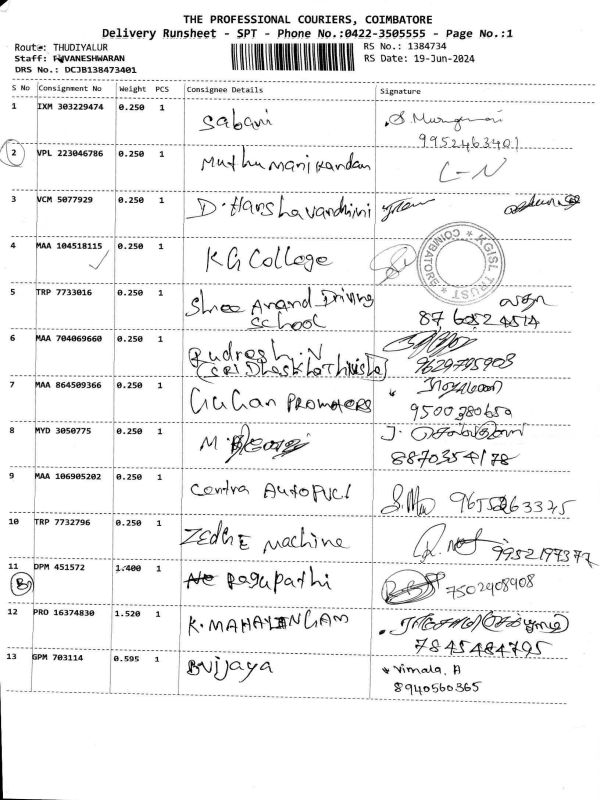 THE PROFESSIONAL COURIERS, COIMBATORE
Delivery Runsheet - SPT - Phone No.:0422-3505555 - Page No.:1
Route: THUDIYALUR
RS No.: 1384734
Staff: PUVANESHWARAN
RS Date: 19-Jun-2024
DRS No.: DCJB138473401
S No Consignment No Weight PCS Consignee Details Signature
1 IXM 303229474 0.250 1 Sabari S. Murugesari
9952463401
2 VPL 223046786 0.250 1 Muthu Manikandan L-N
3 VCM 5077929 0.250 1 D. Harshavardhini
4 MAA 104518115 0.250 1 KG College
KGISL TRUST * COIMBATORE *
5 TRP 7733016 0.250 1 Shree Anand Driving
School
6 MAA 704069660 0.250 1 Rudresh.N
9629795903
7 MAA 864509366 0.250 1 GuGan PROMOTERS
9500380650
8 MYD 3050775 0.250 1 M.
J.
8870354178
9 MAA 106905202 0.250 1 Contra AutoFuel
10 TRP 7732796 0.250 1 Machine
11 DPM 451572 1.400 1 Ragupathi 7502908908
B
12 PRO 16374830 1.520 1 K. MAHALINGAM
7845484795
13 GPM 703114 0.595 1 B vijaya Vimala, A
8940560365